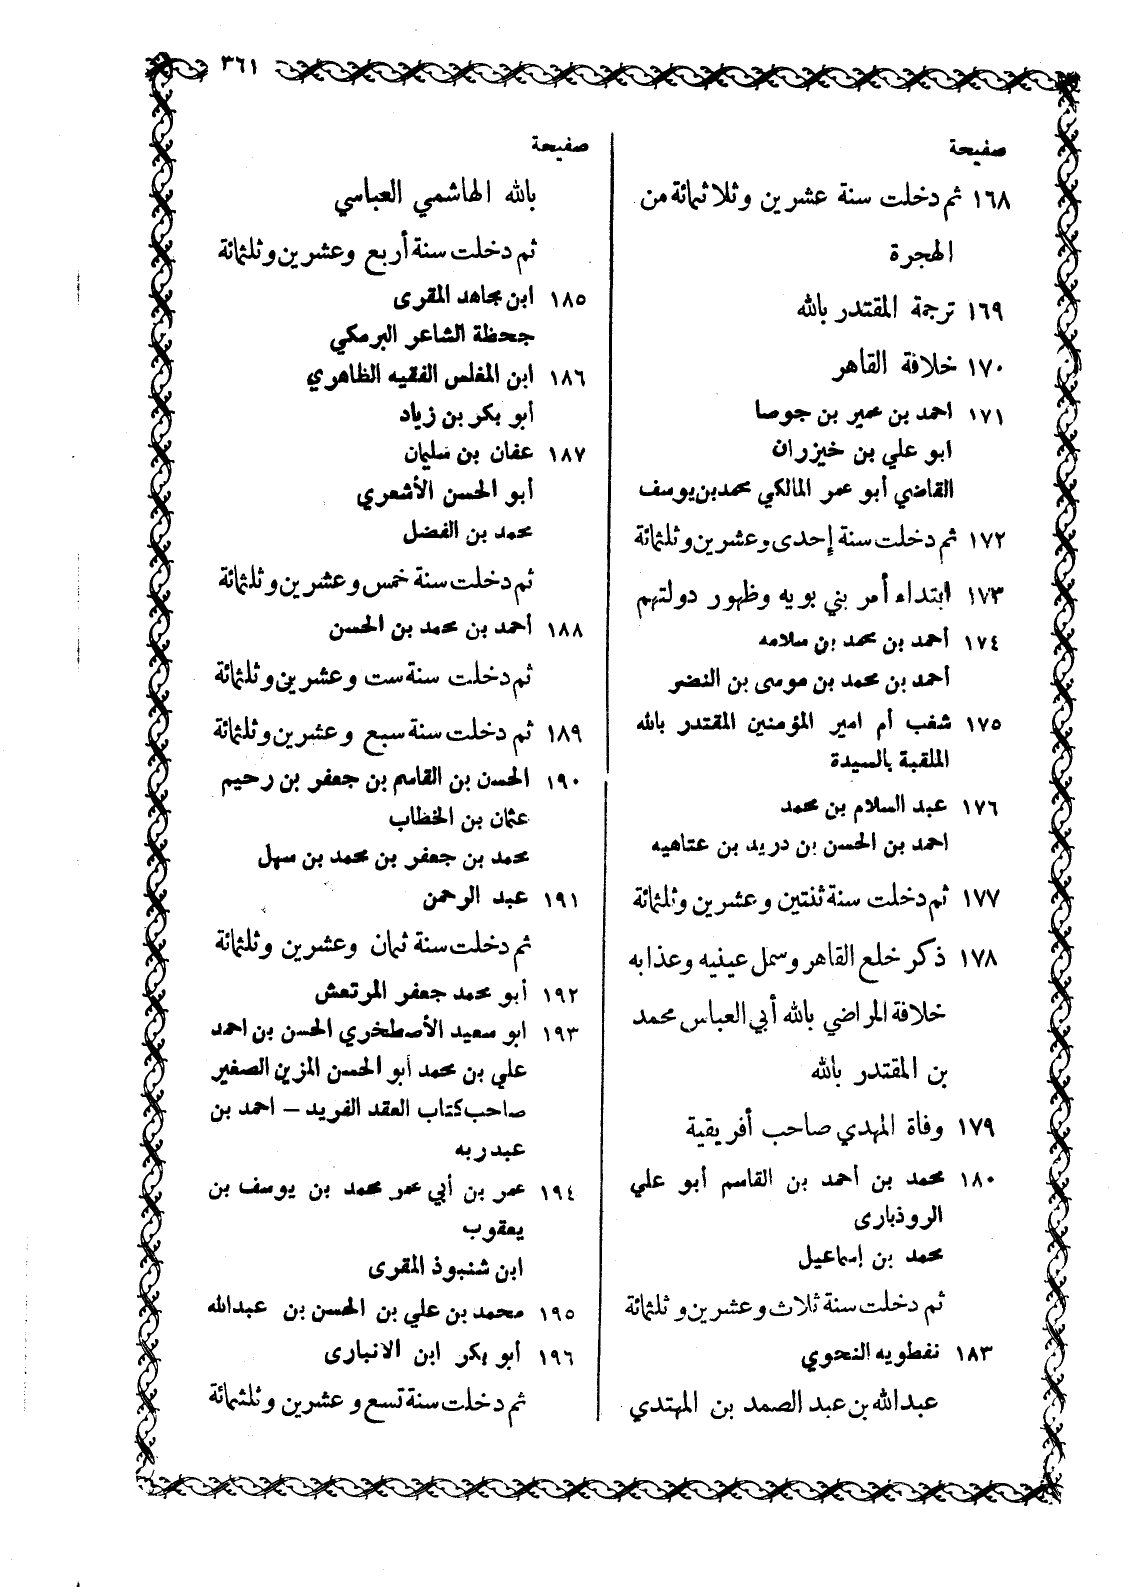 ٣٦١
صفيحة
١٦٨ ثم دخلت سنة عشرين وثلاثمائة من
الهجرة
١٦٩ ترجمة المقتدر بالله
١٧٠ خلافة القاهر
١٧١ احمد بن عمير بن جوصا
ابو علي بن خيزران
القاضي أبو عمر المالكي محمد بن يوسف
١٧٢ ثم دخلت سنة إحدى وعشرين وثلثمائة
١٧٣ ابتداء أمر بني بويه وظهور دولتهم
١٧٤ أحمد بن محمد بن سلامه
أحمد بن محمد بن موسى بن النضر
١٧٥ شغب أم امير المؤمنين المقتدر بالله
الملقبة بالسيدة
١٧٦ عبد السلام بن محمد
احمد بن الحسن بن دريد بن عتاهيه
١٧٧ ثم دخلت سنة ثنتين وعشرين وثلثمائة
١٧٨ ذكر خلع القاهر وسمل عينيه وعذابه
خلافة المراضي بالله أبي العباس محمد
بن المقتدر بالله
١٧٩ وفاة المهدي صاحب أفريقية
١٨٠ محمد بن أحمد بن القاسم أبو علي
الروذبارى
محمد بن إسماعيل
ثم دخلت سنة ثلاث وعشرين وثلثمائة
١٨٣ نفطويه النحوي
عبد الله بن عبد الصمد بن المهتدي
صفيحة
بالله الهاشمي العباسي
ثم دخلت سنة أربع وعشرين وثلثمائة
١٨٥ ابن مجاهد المقرى
جحظة الشاعر البرمكي
١٨٦ ابن المغلس الفقيه الظاهري
أبو بكر بن زياد
١٨٧ عفان بن سليمان
أبو الحسن الأشعري
محمد بن الفضل
ثم دخلت سنة خمس وعشرين وثلثمائة
١٨٨ أحمد بن محمد بن الحسن
ثم دخلت سنة ست وعشرين وثلثمائة
١٨٩ ثم دخلت سنة سبع وعشرين وثلثمائة
١٩٠ الحسن بن القاسم بن جعفر بن رحيم
عثمان بن الخطاب
محمد بن جعفر بن محمد بن سهل
١٩١ عبد الرحمن
ثم دخلت سنة ثمان وعشرين وثلثمائة
١٩٢ أبو محمد جعفر المرتعش
١٩٣ ابو سعيد الأصطخري الحسن بن احمد
علي بن محمد أبو الحسن المزين الصغير
صاحب كتاب العقد الفريد – احمد بن
عبدربه
١٩٤ عمر بن أبي عمر محمد بن يوسف بن
يعقوب
ابن شنبوذ المقرى
١٩٥ محمد بن علي بن الحسن بن عبدالله
١٩٦ أبو بكر ابن الانبارى
ثم دخلت سنة تسع وعشرين وثلثمائة